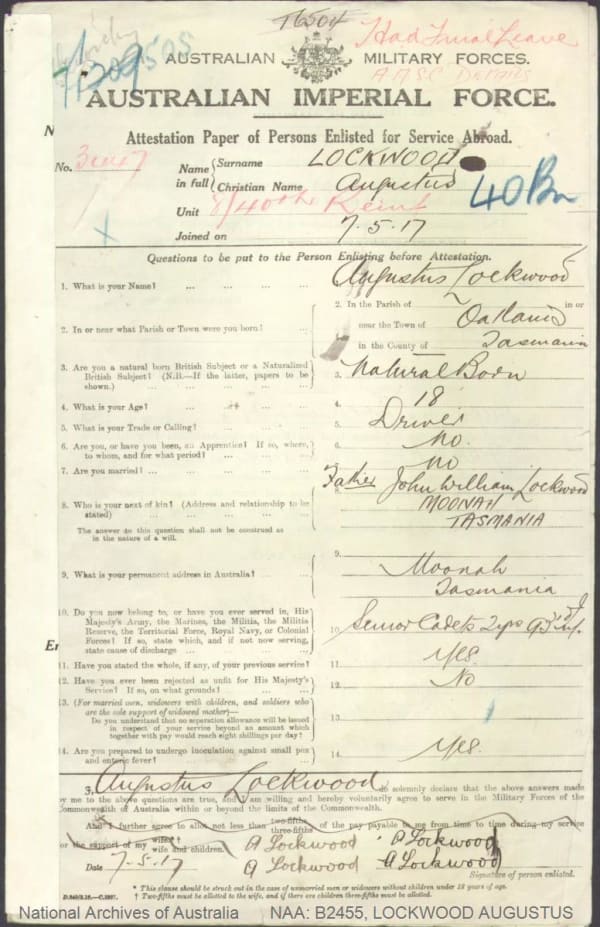 T6504
Had Final Leave
AUSTRALIAN MILITARY FORCES.
A.A.S.C. DETAILS
AUSTRALIAN IMPERIAL FORCE.
Attestation Paper of Persons Enlisted for Service Abroad.
No.
Name in full { Surname LOCKWOOD
Christian Name Augustus
40Bn
Unit 8/40th Reinf
Joined on 7.5.17
Questions to be put to the Person Enlisting before Attestation.
1. What is your Name? ... ... ... ... Augustus Lockwood
2. In or near what Parish or Town were you born? ... 2. In the Parish of in or
near the Town of Oatlands
in the County of Tasmania
3. Are you a natural born British Subject or a Naturalized
British Subject? (N.B.—If the latter, papers to be
shown.) ... ... ... ... 3. Natural Born
4. What is your Age? ... ... ... 4. 18
5. What is your Trade or Calling? ... ... ... 5. Driver
6. Are you, or have you been, an Apprentice? If so, where,
to whom, and for what period? ... ... ... 6. No.
7. Are you married? ... ... ... ... No
8. Who is your next of kin? (Address and relationship to be
stated) ... ... ... ... 8. Father John William Lockwood
MOONAH
TASMANIA
The answer to this question shall not be construed as
in the nature of a will.
9. What is your permanent address in Australia? ... 9. Moonah
Tasmania
10. Do you now belong to, or have you ever served in, His
Majesty's Army, the Marines, the Militia, the Militia
Reserve, the Territorial Force, Royal Navy, or Colonial
Forces? If so, state which, and if not now serving,
state cause of discharge ... ... ... 10. Senior Cadets 2yrs
11. Have you stated the whole, if any, of your previous service? 11. Yes.
12. Have you ever been rejected as unfit for His Majesty's
Service? If so, on what grounds? ... ... 12. No
13. (For married men, widowers with children, and soldiers who
are the sole support of widowed mother)—
Do you understand that no separation allowance will be issued
in respect of your service beyond an amount which
together with pay would reach eight shillings per day? 13.
14. Are you prepared to undergo inoculation against small pox
and enteric fever? ... ... ... 14. Yes.
I, Augustus Lockwood do solemnly declare that the above answers made
by me to the above questions are true, and I am willing and hereby voluntarily agree to serve in the Military Forces of the
Commonwealth of Australia within or beyond the limits of the Commonwealth.
* And I further agree to allot not less than two-fifths three-fifths of the pay payable to me from time to time during my service
for the support of my wife† wife and children. A Lockwood A Lockwood
Date 7-5.17 A Lockwood A Lockwood
Signature of person enlisted.
* This clause should be struck out in the case of unmarried men or widowers without children under 18 years of age.
† Two-fifths must be allotted to the wife, and if there are children three-fifths must be allotted.
National Archives of Australia NAA: B2455, LOCKWOOD AUGUSTUS